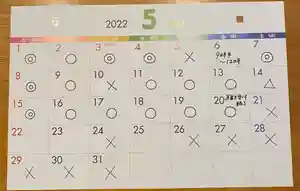 2022 5
1 2 3 4 5 6 7
◎ ○ ◎ ◎ × ◎
8 9 10 11 12 13 14
◎ ○ × ○ ○ ○ △
15 16 17 18 19 20 21
◎ ○ ○ ○ ○ ○ ×
22 23 24 25 26 27 28
× × × ×
29 30 31
× × ×